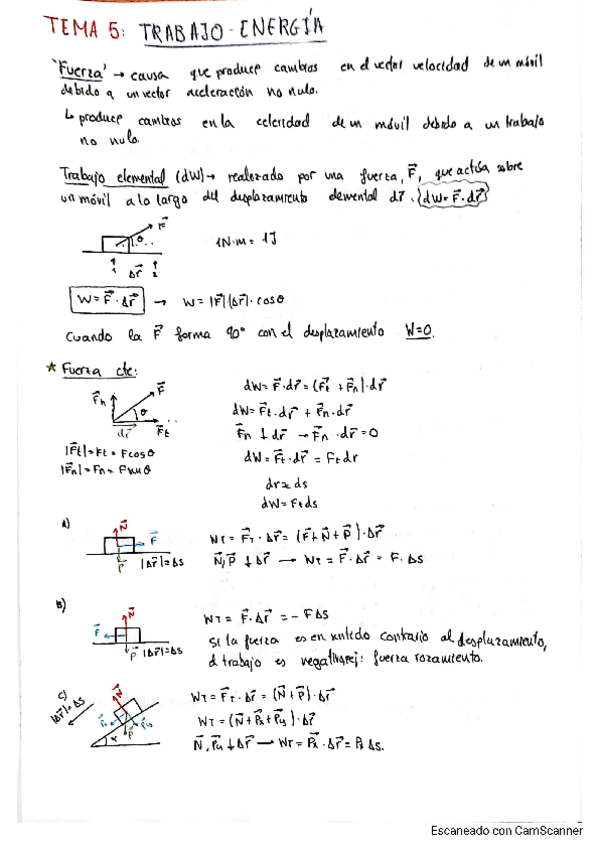 TEMA 5: TRABAJO-ENERGÍA
'Fuerza' → causa que produce cambios en el vector velocidad de un móvil
debido a un vector aceleración no nulo.
↳ produce cambios en la celeridad de un móvil debido a un trabajo
no nulo.
Trabajo elemental (dW) → realizado por una fuerza, F⃗, que actúa sobre
un móvil a lo largo del desplazamiento elemental dr⃗. {dW = F⃗ · dr⃗}
F⃗
θ
1N·m = 1J
1 Δr⃗ 2
W = F⃗ · Δr⃗ → W = |F⃗| |Δr⃗| · cosθ
Cuando la F⃗ forma 90° con el desplazamiento W=0.
* Fuerza cte:
F⃗n F⃗ θ dr⃗ F⃗t
|F⃗t| = Ft = F cosθ
|F⃗n| = Fn = F senθ
dW = F⃗ · dr⃗ = (F⃗t + F⃗n) · dr⃗
dW = F⃗t · dr⃗ + F⃗n · dr⃗
F⃗n ⊥ dr⃗ → F⃗n · dr⃗ = 0
dW = F⃗t · dr⃗ = Ft dr
dr ≈ ds
dW = Ft ds
a)
N⃗ F⃗ P⃗ |Δr⃗| = Δs
WT = F⃗T · Δr⃗ = (F⃗ + N⃗ + P⃗) · Δr⃗
N⃗, P⃗ ⊥ Δr⃗ → WT = F⃗ · Δr⃗ = F · Δs
b)
N⃗ F⃗ P⃗ |Δr⃗| = Δs
WT = F⃗ · Δr⃗ = - FΔs
Si la fuerza es en sentido contrario al desplazamiento,
el trabajo es negativo, ej: fuerza rozamiento.
c)
|Δr⃗| = Δs
N⃗ P⃗x P⃗ P⃗y α
WT = F⃗T · Δr⃗ = (N⃗ + P⃗) · Δr⃗
WT = (N⃗ + P⃗x + P⃗y) · Δr⃗
N⃗, P⃗y ⊥ Δr⃗ → WT = P⃗x · Δr⃗ = Px Δs.
Escaneado con CamScanner